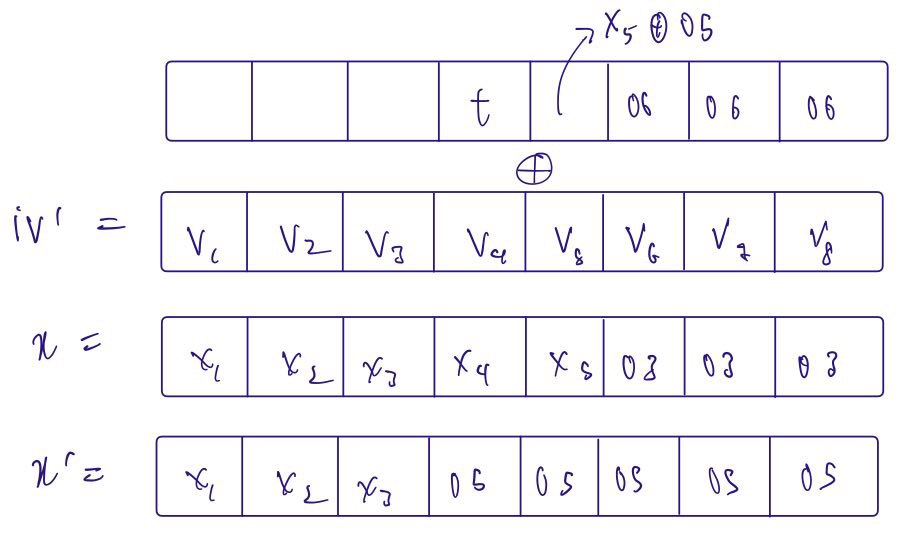 x₅ ⊕ 05
t 06 06 06
⊕
iv' = V₁ V₂ V₃ V₄ V₅ V₆ V₇ V₈
x = x₁ x₂ x₃ x₄ x₅ 03 03 03
x' = x₁ x₂ x₃ 05 05 05 05 05